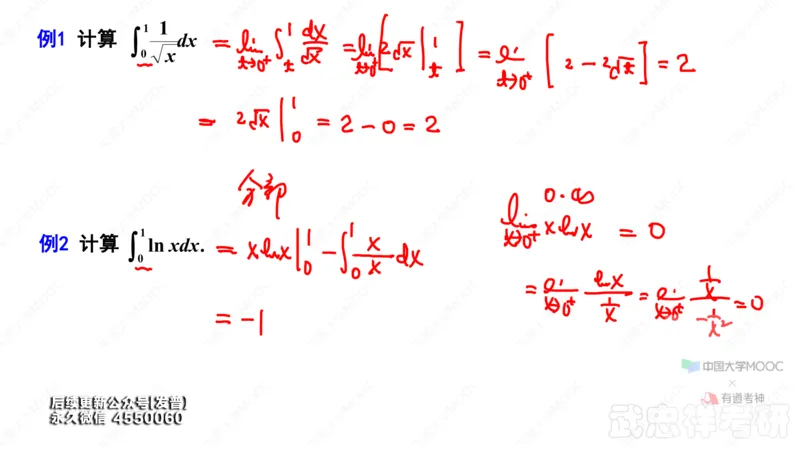 例1 计算 ∫₀¹ 1/√x dx = lim_{t→0⁺} ∫_t^1 dx/√x = lim_{t→0⁺} [2√x |_t^1] = lim_{t→0⁺} [2 − 2√t] = 2
= 2√x |_0^1 = 2 − 0 = 2
分部
0·∞
lim_{x→0⁺} x ln x = 0
例2 计算 ∫₀¹ ln x dx. = x ln x |_0^1 − ∫₀¹ x/x dx
= lim_{x→0⁺} ln x / (1/x) = lim_{x→0⁺} (1/x) / (−1/x²) = 0
= −1
中国大学MOOC
×
有道考神
后续更新公众号[发普]
永久微信 4550060
武忠祥考研